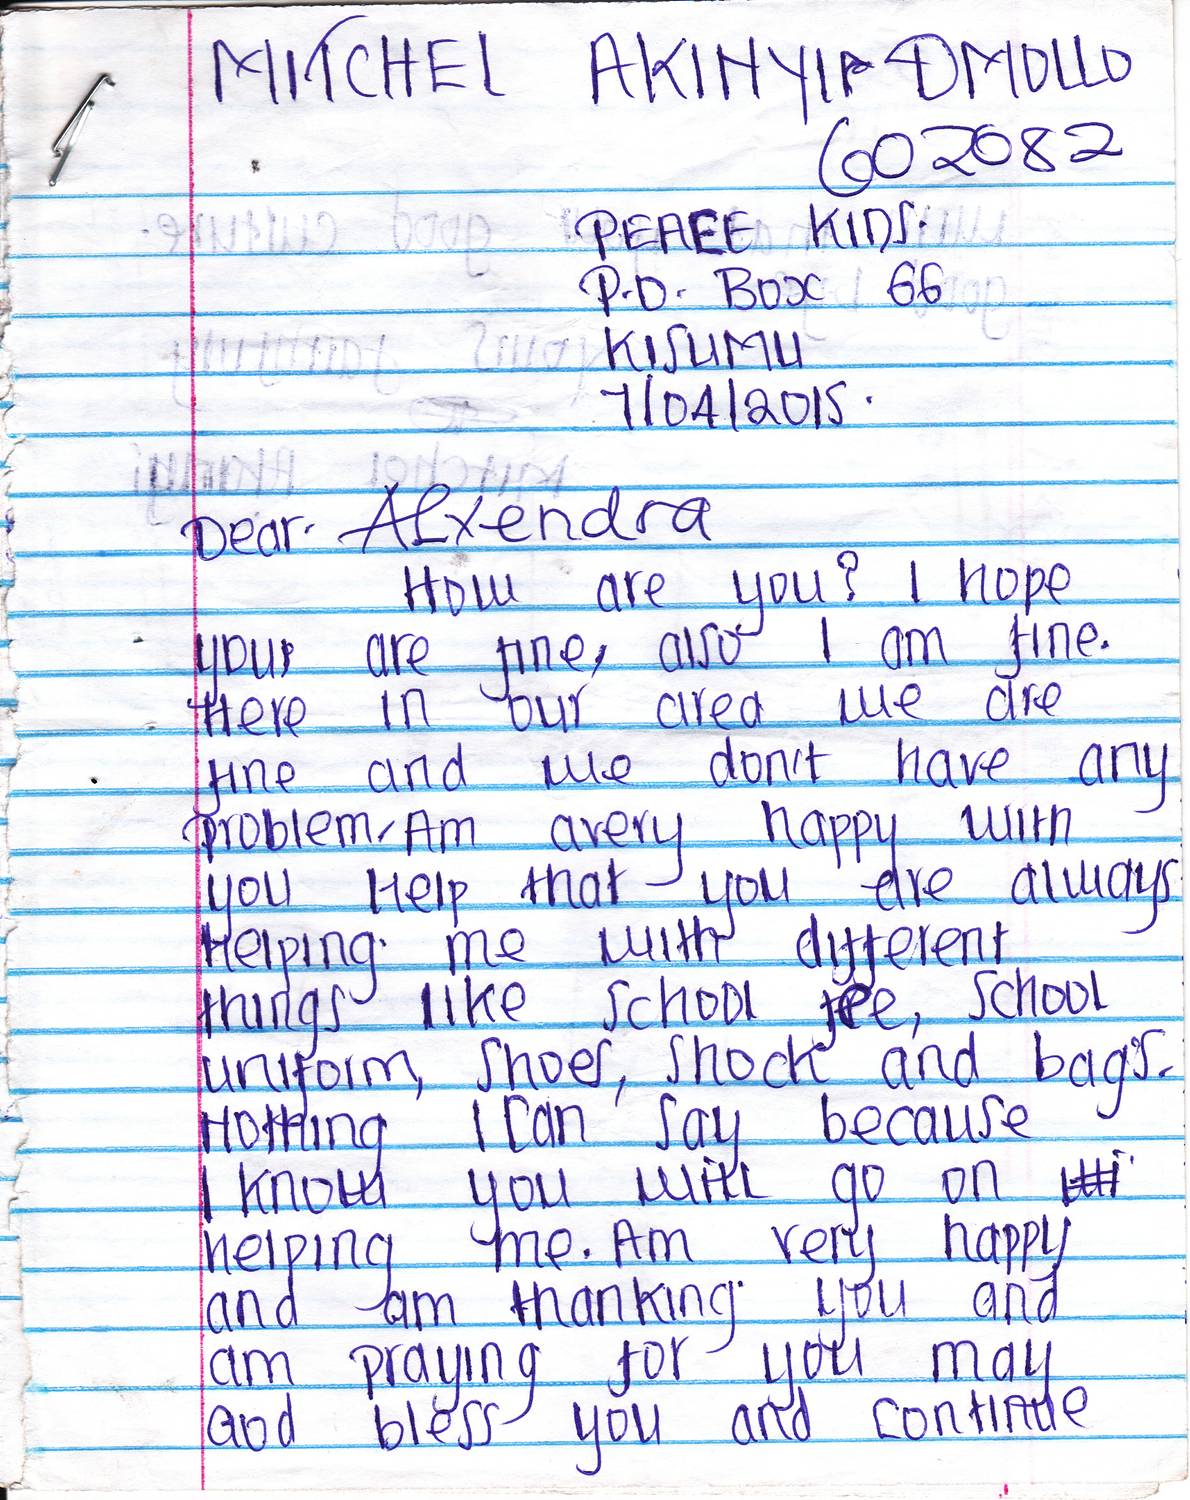 MITCHEL AKINYIA OMOLLO
602082
PEAEE KIDS.
P.O. BOX 66
KISUMU
7/04/2015.
Dear. ALxendra
How are you? I hope
your are fine, also I am fine.
Here in our area we are
fine and we don't have any
problem, Am avery happy with
you Help that you are always
Helping me with different
things like school fee, school
uniform, shoes, shock and bags.
Nothing I can say because
I know you will go on
helping me. Am very happy
and am thanking you and
am praying for you may
God bless you and continue